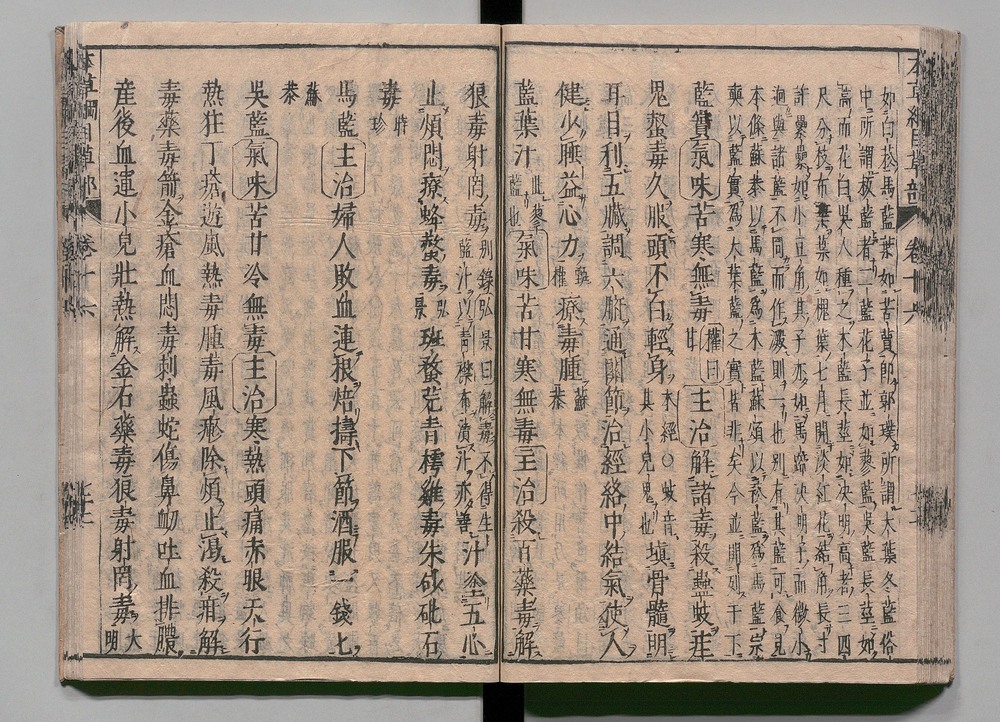 如白菘馬藍葉如苦蕒即郭璞所謂大葉冬藍俗
中所謂板藍者二藍花子並如蓼藍吳藍長莖如
蒿而花白吳人種之木藍長莖如决明高者三四
尺分枝布葉葉如槐葉七月開淡紅花結角長寸
許纍纍如小豆角其子亦如馬蹄决明子而微小
迥與諸藍不同而作澱則一也別有甘藍可食見
本條蘇恭以馬藍爲木藍蘇頌以菘藍爲馬藍宗
奭以藍實爲大葉藍之實皆非矣今並開列于下
藍實氣味苦寒無毒權曰甘主治解諸毒殺蠱蚑疰
鬼螫毒久服頭不白輕身本經○蚑音其小兒鬼也塡骨髓明
耳目利五臟調六腑通關節治經絡中結氣使人
健少睡益心力甄權療毒腫蘇恭
藍葉汁此蓼藍也氣味苦甘寒無毒主治殺百藥毒解
狼毒射罔毒別錄弘景曰解毒不得生藍汁以青襟布漬汁亦善汁塗五心
止煩悶療蜂螫毒弘景斑蝥芫青樗雞毒朱砂砒石
毒時珍
馬藍主治婦人敗血連根焙擣下篩酒服一錢七
蘇恭
吳藍氣味苦甘冷無毒主治寒熱頭痛赤眼天行
熱狂丁瘡遊風熱毒腫毒風𤺋除煩止渴殺疳解
毒藥毒箭金瘡血悶毒刺蟲蛇傷鼻衂吐血排膿
産後血運小兒壯熱解金石藥毒狼毒射罔毒大明
本草綱目草部 卷十六